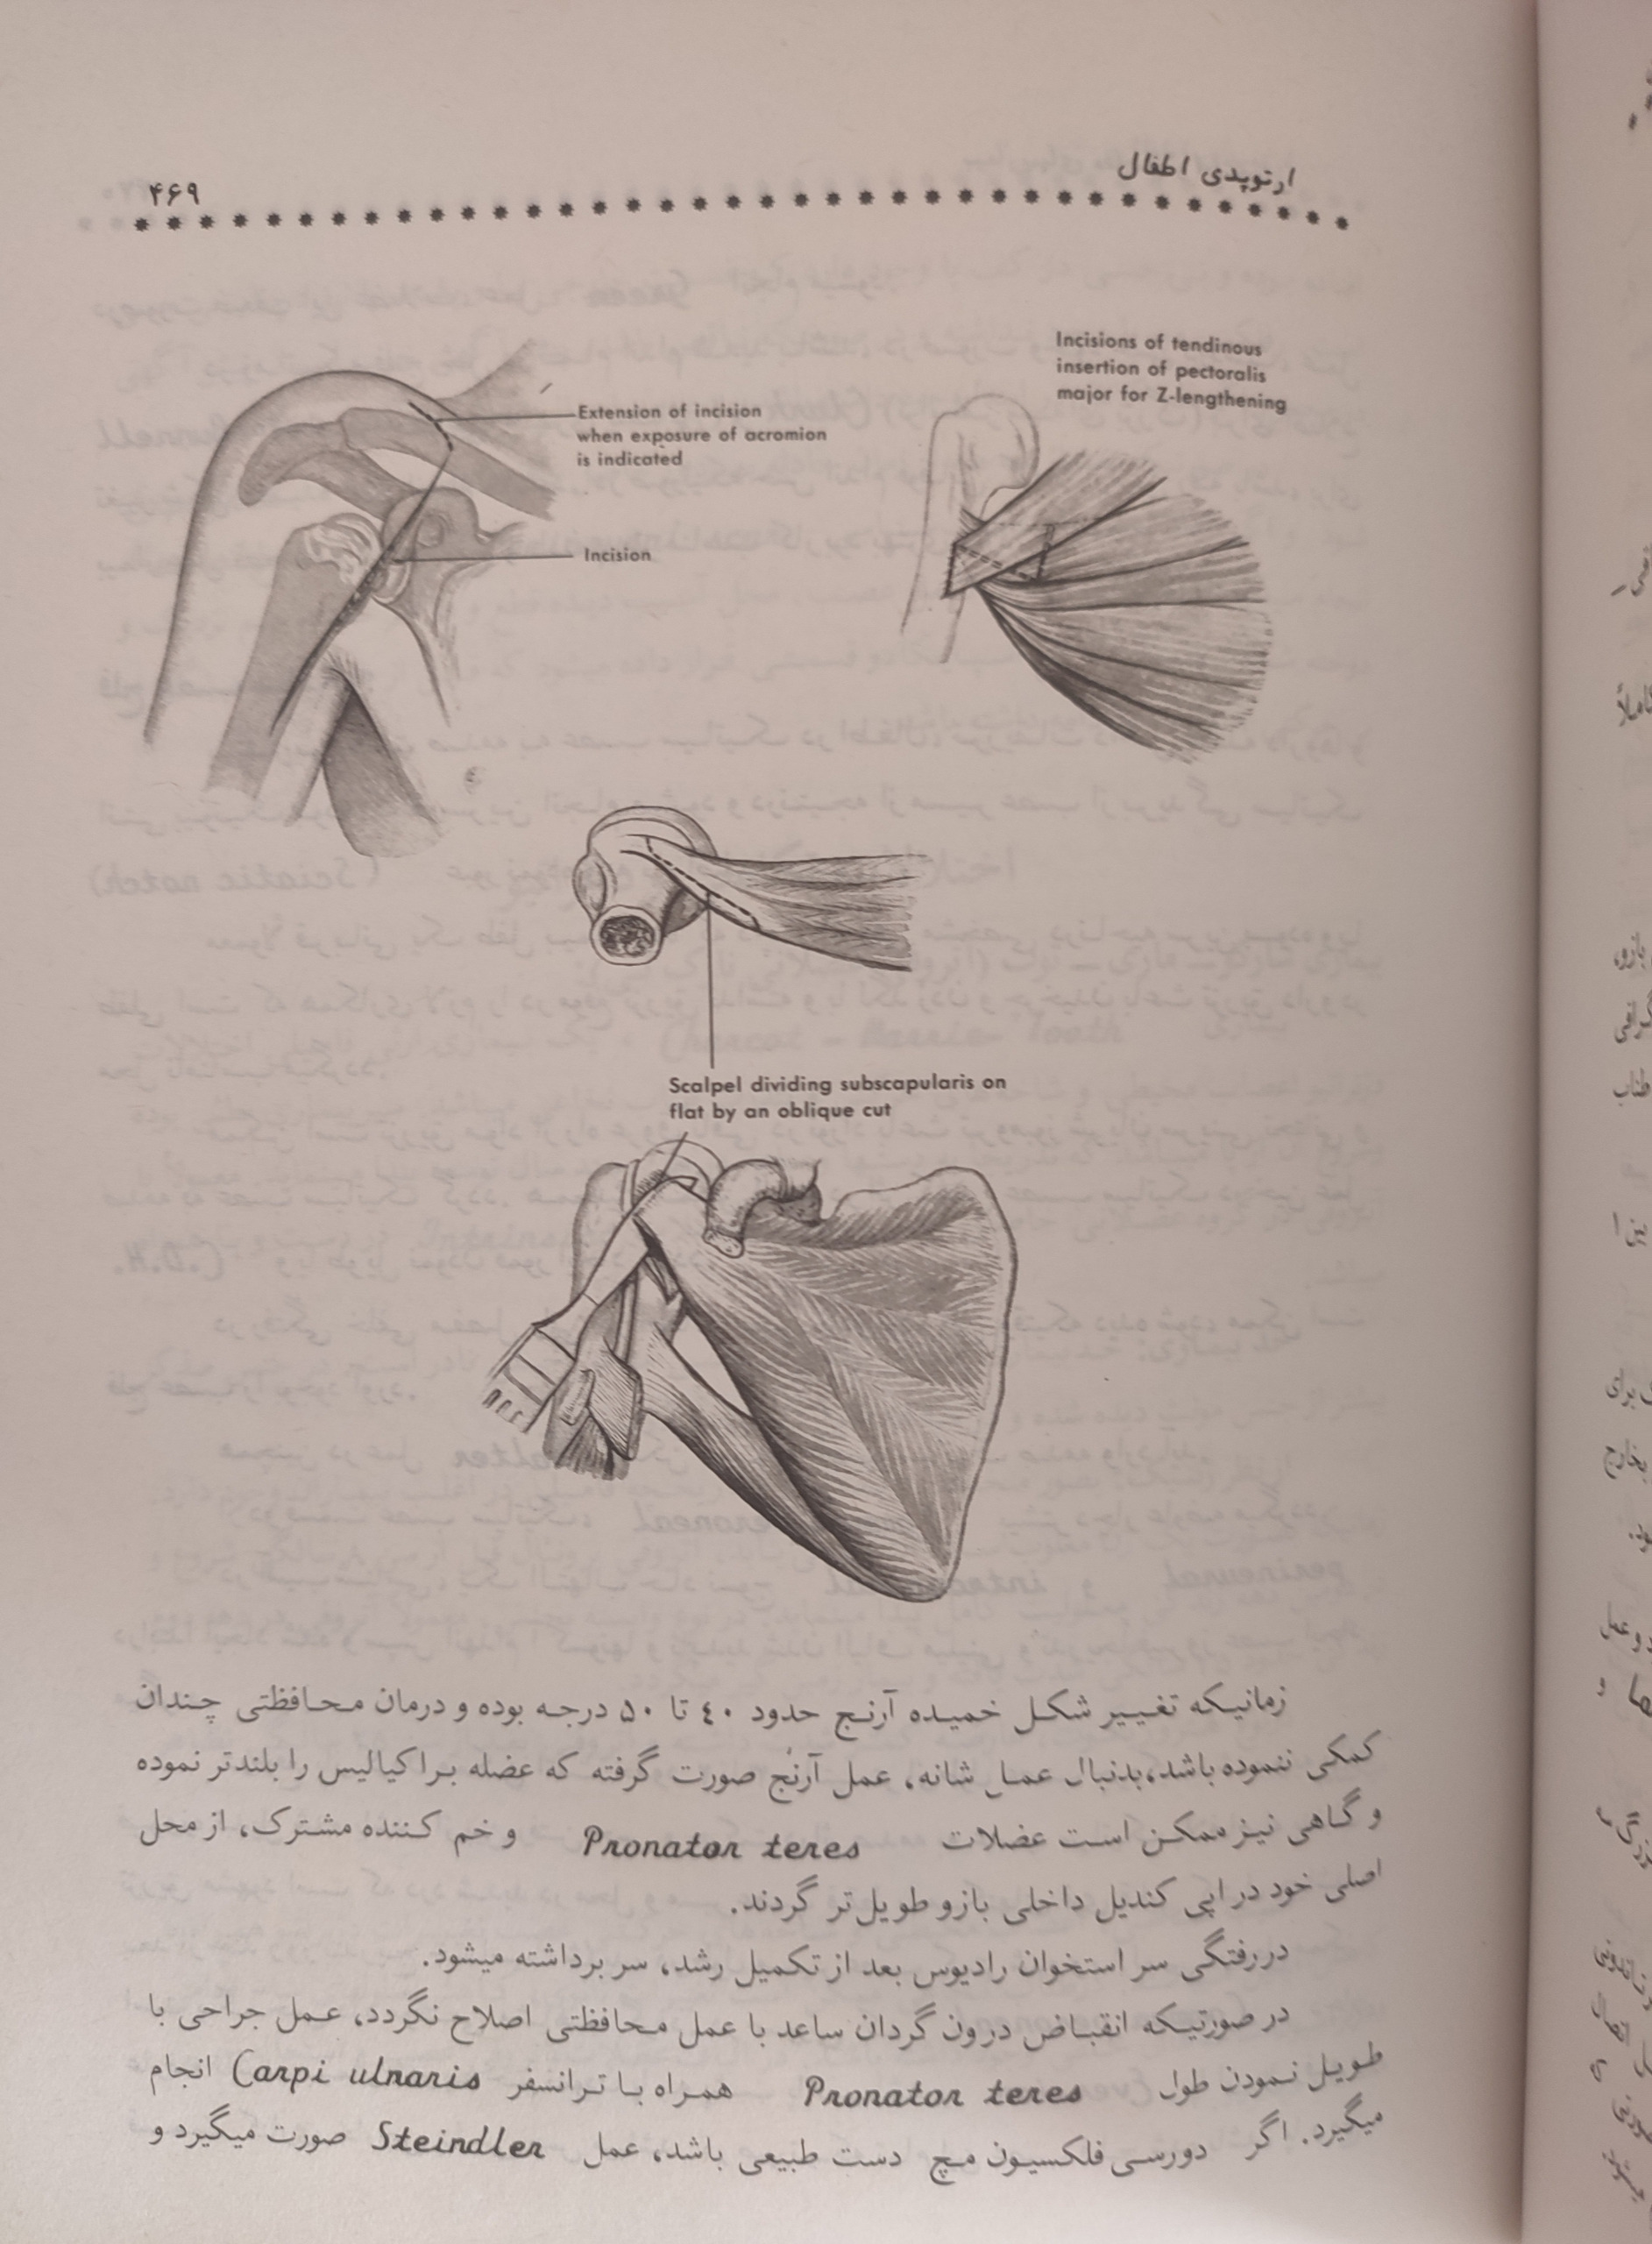 ارتوپدی اطفال
۴۶۹
Extension of incision
when exposure of acromion
is indicated
Incision
Incisions of tendinous
insertion of pectoralis
major for Z-lengthening
Scalpel dividing subscapularis on
flat by an oblique cut
زمانیکه تغییر شکل خمیده آرنج حدود ۴۰ تا ۵۰ درجه بوده و درمان محافظتی چندان
کمکی ننموده باشد، بدنبال عمل شانه، عمل آرنج صورت گرفته که عضله براکیالیس را بلندتر نموده
و گاهی نیز ممکن است عضلات Pronator teres و خم کننده مشترک، از محل
اصلی خود در اپی کندیل داخلی بازو طویل تر گردند.
دررفتگی سر استخوان رادیوس بعد از تکمیل رشد، سر برداشته میشود.
در صورتیکه انقباض درون گردان ساعد با عمل محافظتی اصلاح نگردد، عمل جراحی با
طویل نمودن طول Pronator teres همراه با ترانسفر Carpi ulnaris انجام
میگیرد. اگر دورسی فلکسیون مچ دست طبیعی باشد، عمل Steindler صورت میگیرد و